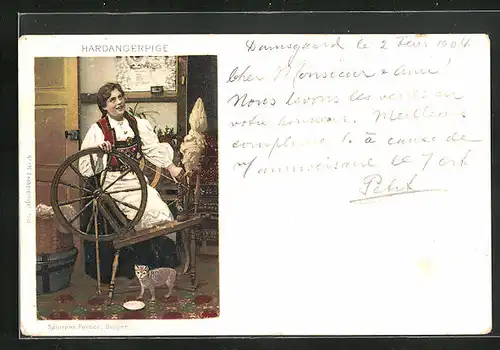 HARDANGERPIGE
Damsgaard le 2 1904
Cher Monsieur & ami!
Nous levons les verres en
votre honneur. Meilleurs
compliments à cause de
l'anniversaire le
Petit
Bergen.